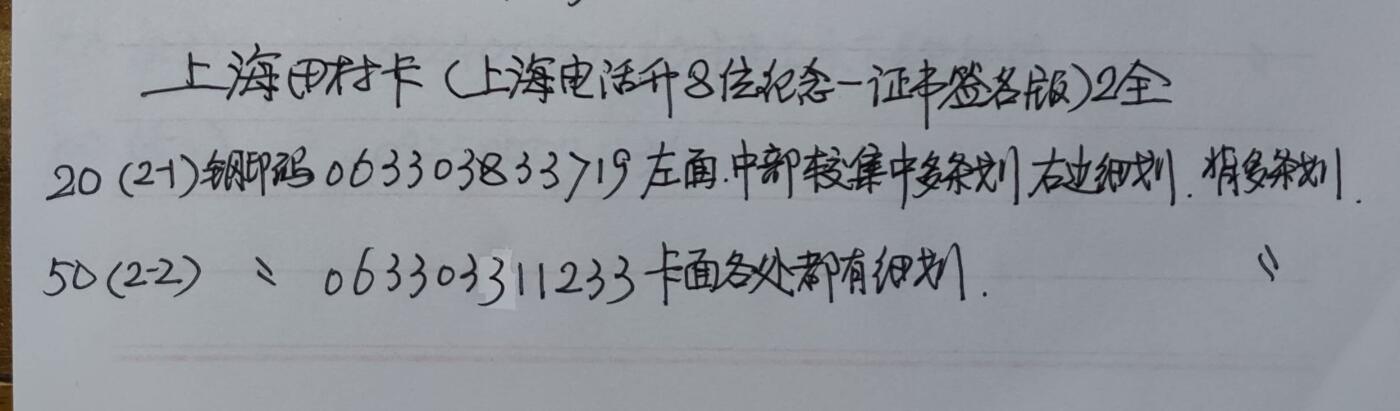 上海田村卡(上海电话升8位纪念一证书签名版)2全
20(2-1)钢印码063303833719左面.中部较集中多条划 右边细划.背多条划.
50(2-2) 〃 063303311233卡面各处都有细划. 〃